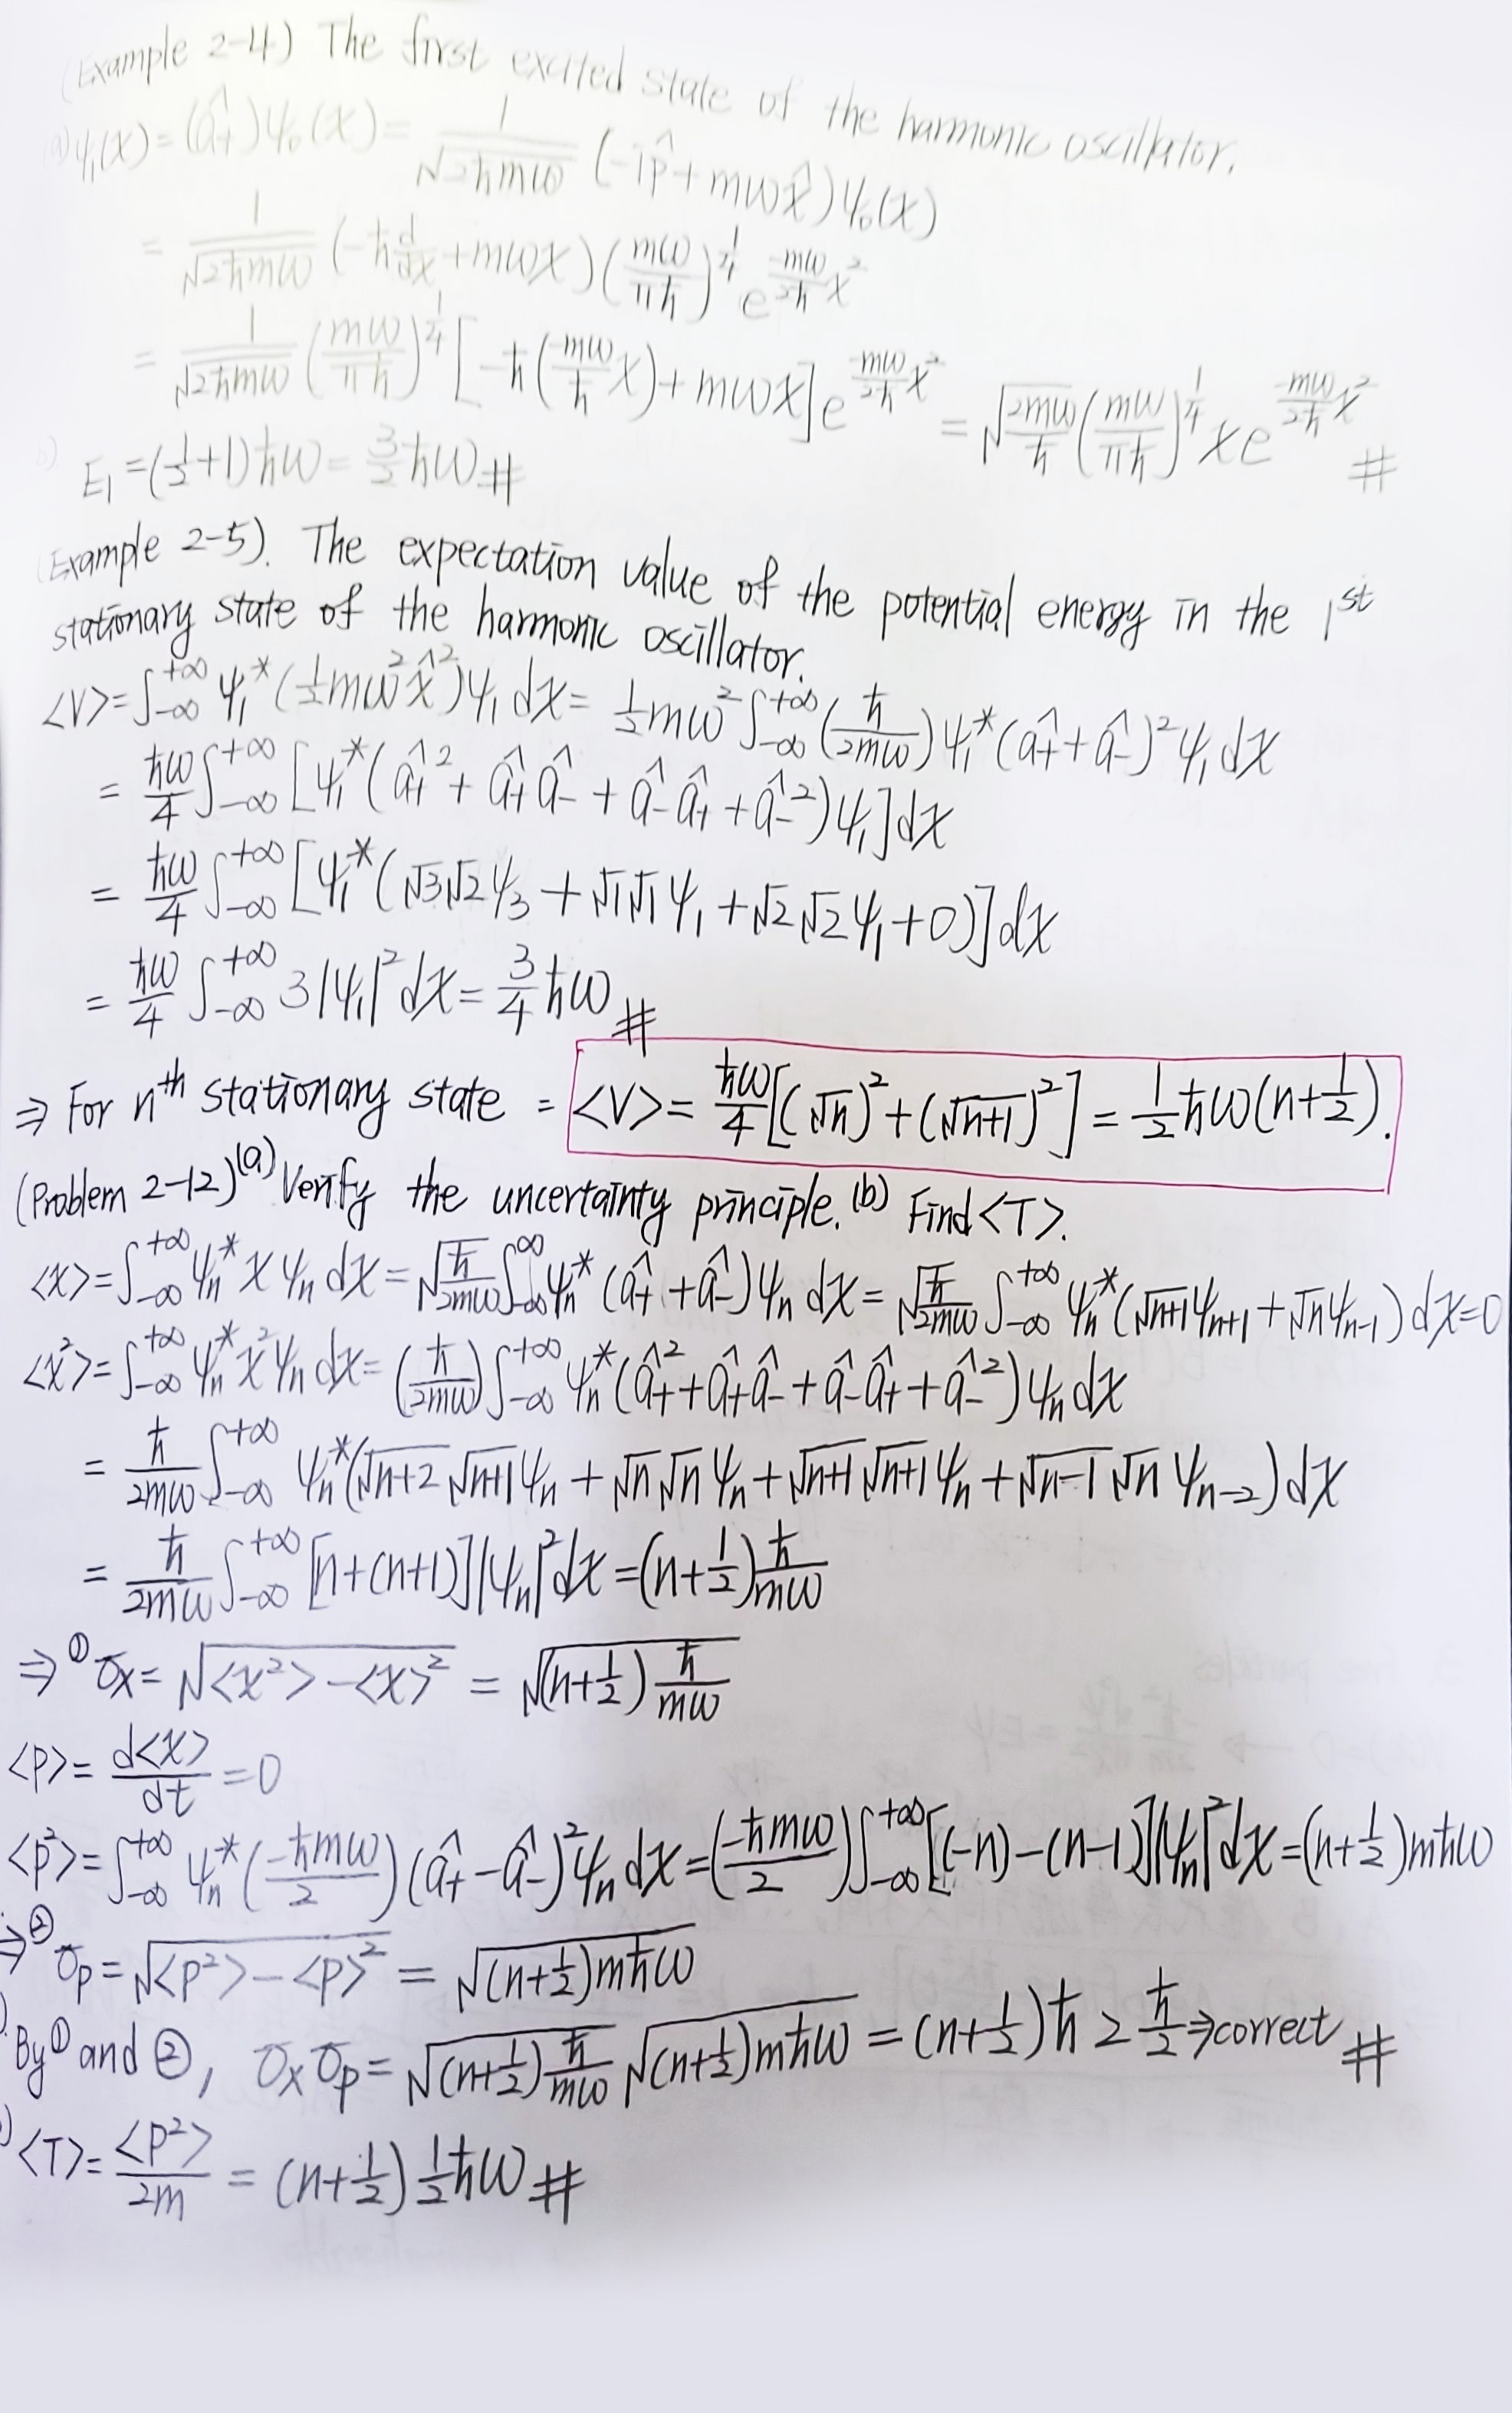 (Example 2-4) The first excited state of the harmonic oscillator.
(a) ψ₁(x) = (â₊)ψ₀(x) = 1/√(2ħmω) (-ip̂ + mωx̂)ψ₀(x)
= 1/√(2ħmω) (-ħ d/dx + mωx)(mω/πħ)^(1/4) e^(-mω/2ħ x²)
= 1/√(2ħmω) (mω/πħ)^(1/4) [-ħ(-mω/ħ x) + mωx] e^(-mω/2ħ x²) = √(2mω/ħ) (mω/πħ)^(1/4) x e^(-mω/2ħ x²) #
b) E₁ = (1/2+1)ħω = 3/2 ħω #
(Example 2-5). The expectation value of the potential energy in the 1st
stationary state of the harmonic oscillator.
<V> = ∫_{-∞}^{+∞} ψ₁*(1/2 mω²x̂²)ψ₁ dx = 1/2 mω² ∫_{-∞}^{+∞} (ħ/2mω) ψ₁*(â₊ + â₋)² ψ₁ dx
= ħω/4 ∫_{-∞}^{+∞} [ψ₁*(â₊² + â₊â₋ + â₋â₊ + â₋²)ψ₁] dx
= ħω/4 ∫_{-∞}^{+∞} [ψ₁*(√3√2 ψ₃ + √1√1 ψ₁ + √2√2 ψ₁ + 0)] dx
= ħω/4 ∫_{-∞}^{+∞} 3|ψ₁|² dx = 3/4 ħω #
⇒ For nth stationary state = <V> = ħω/4 [(√n)² + (√(n+1))²] = 1/2 ħω(n+1/2).
(Problem 2-12) (a) Verify the uncertainty principle. (b) Find <T>.
<x> = ∫_{-∞}^{+∞} ψₙ* x ψₙ dx = √(ħ/2mω) ∫_{-∞}^{∞} ψₙ*(â₊ + â₋)ψₙ dx = √(ħ/2mω) ∫_{-∞}^{+∞} ψₙ*(√(n+1) ψₙ₊₁ + √n ψₙ₋₁) dx = 0
<x²> = ∫_{-∞}^{+∞} ψₙ* x² ψₙ dx = (ħ/2mω) ∫_{-∞}^{+∞} ψₙ*(â₊² + â₊â₋ + â₋â₊ + â₋²)ψₙ dx
= ħ/2mω ∫_{-∞}^{+∞} ψₙ*(√(n+2) √(n+1) ψₙ + √n√n ψₙ + √(n+1) √(n+1) ψₙ + √(n-1) √n ψₙ₋₂) dx
= ħ/2mω ∫_{-∞}^{+∞} [n+(n+1)]|ψₙ|² dx = (n+1/2) ħ/mω
⇒ ① σx = √(<x²> - <x>²) = √((n+1/2) ħ/mω)
<p> = d<x>/dt = 0
<p²> = ∫_{-∞}^{+∞} ψₙ*(-ħmω/2)(â₊ - â₋)² ψₙ dx = (-ħmω/2) ∫_{-∞}^{+∞} [(-n)-(n-1)]|ψₙ|² dx = (n+1/2)mħω
⇒ ② σp = √(<p²> - <p>²) = √((n+1/2)mħω)
). By ① and ②, σx σp = √((n+1/2) ħ/mω) √((n+1/2)mħω) = (n+1/2)ħ ≥ ħ/2 ⇒ correct #
) <T> = <p²>/2m = (n+1/2) 1/2 ħω #